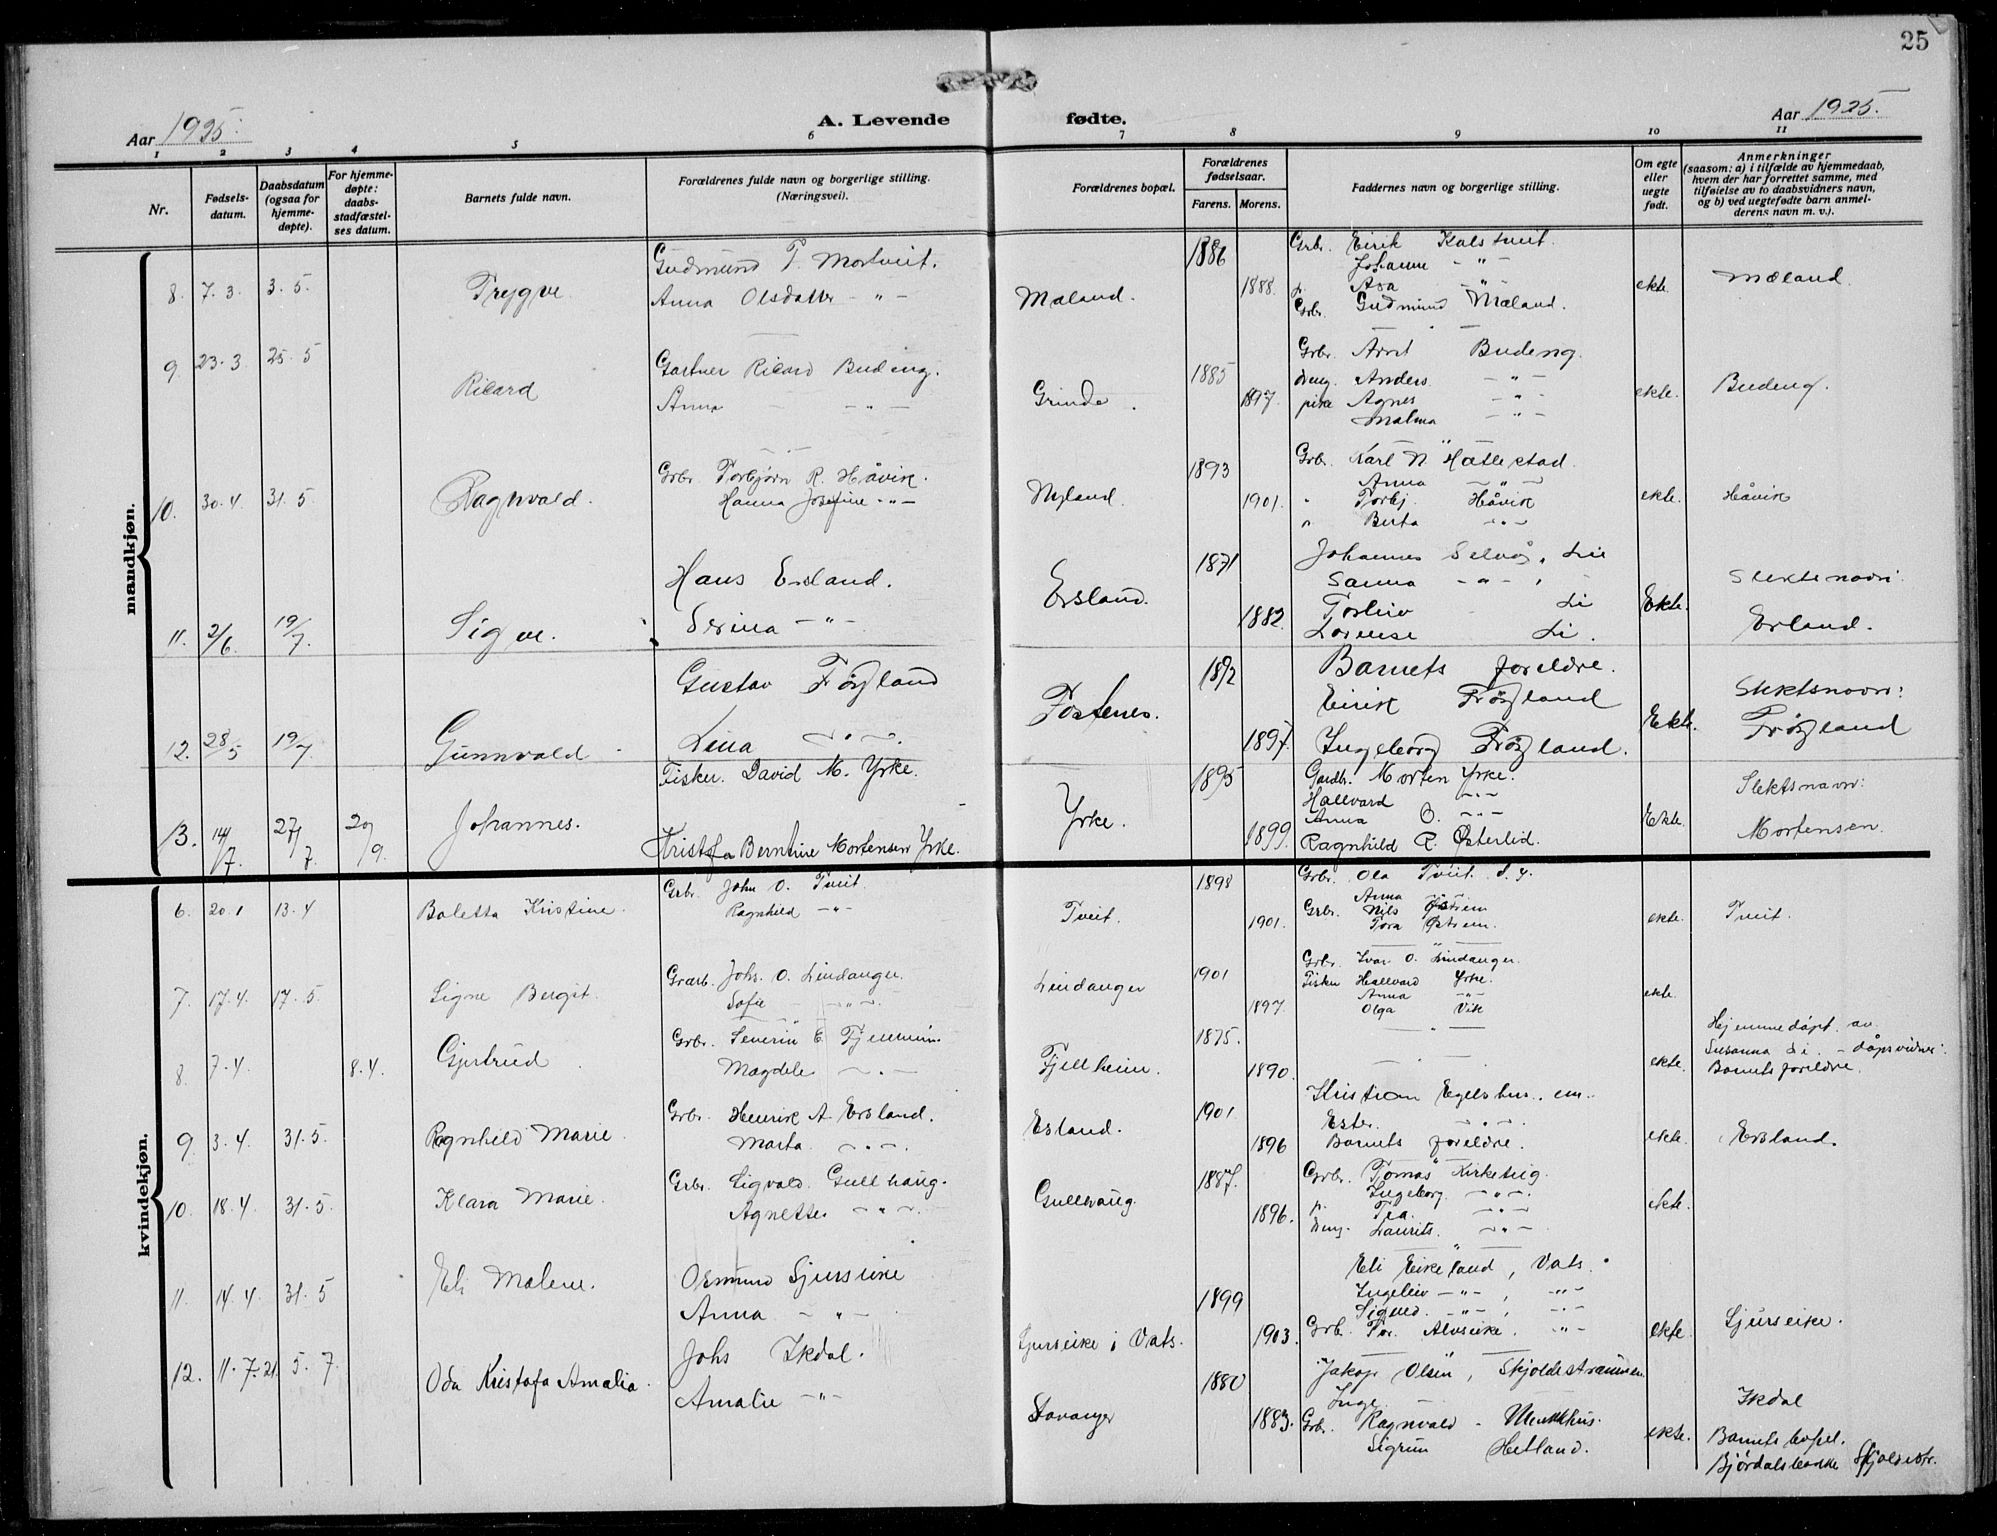 25
Aar 1925.
A. Levende fødte.
Aar 1925.
1 2 3 4 5 6 7 8 9 10 11
Nr.
Fødsels-
datum.
Daabsdatum
(ogsaa for
hjemme-
døpte).
For hjemme-
døpte:
daabs-
stadfæstel-
ses datum.
Barnets fulde navn.
Forældrenes fulde navn og borgerlige stilling.
(Næringsvei).
Forældrenes bopæl.
Forældrenes
fødselsaar.
Farens. Morens.
Faddernes navn og borgerlige stilling.
Om egte
eller
uegte
født.
Anmerkninger
(saasom: a) i tilfælde av hjemmedaab,
hvem der har forrettet samme, med
tilføielse av to daabsvidners navn,
og b) ved uegtefødte barn anmel-
derens navn m. v.).
mandkjøn.
8. 7.3. 3.5. Trygve
Gudmund T. Mortveit.
Anna Olsdatter - " -
Mæland. 1886 1888.
Grb. Eirik Kalstveit.
Johanne - " -
p. Asa - " -
Grb. Gudmund Mæland.
ekte. Mæland.
9. 23.3 25.5 Ricard
Gartner Ricard Budeng.
Anna - " -
Grinde. 1885 1897.
Grb. Arnt Budeng.
Ung. Anders - " -
pike Agnes - " -
Malma - " -
ekte. Budeng.
10. 30.4. 31.5 Ragnvald.
Grb. Torbjørn R. Håvik.
Hanna Josefine - " -
Nyland. 1893 1901.
Grb. Karl N. Hatlestad.
Anna - " -
" Torbj. Håvik
" Berta - " -
ekte. Håvik
11. 2/6 19/7. Sigve.
Hans Ersland.
Serina - " -
Ersland. 1871 1882.
Johannes Selvåg, Lie
Sanna - " -
Torleiv Li
Lorense Li.
Ekte. Slektsnavn:
Erland.
12. 28/5 19/7 Gunnvald
Gustav Frøyland
Lina - " -
Fostenes. 1892 1897.
Barnets foreldre.
Eirik Frøyland
Ingeborg Frøyland.
Ekte. Slektsnavn:
Frøyland
13. 14/7 27/7. 20/9. Johannes.
Fisker. David M. Yrke.
Kristofa Berntine Mortensen Yrke.
Yrke. 1895 1899.
Gardbr. Morten Yrke.
Hallvard - " -
Anna O. - " -
Ragnhild R. Østerlid.
Ekte. Slektsnavn:
Mortensen.
kvindekjøn.
6. 20.1 13.4 Boletta Kristine.
Grb. John O. Tveit.
Ragnhild - " -
Tveit. 1898 1901.
Grb. Ola Tveit. d. y.
Anna - " -
Grb. Nils Østrem
Tora Østrem.
ekte. Tveit.
7. 17.4. 17.5. Signe Bergit.
Grarb. Johs. O. Lindanger.
Sofie - " -
Lindanger 1901 1897.
Grb. Ivar O. Lindanger.
Fisker Hallvard Yrke.
Anna - " -
Olga Vik
ekte.
8. 7.4. 8.4. Gjertrud
Grb. Severin E. Fjellheim
Magdele - " -
Fjellheim. 1875. 1890.
ekte. Hjemmedøpt av
Susanna Li. - dåpsvidner:
Barnets foreldre.
9. 3.4. 31.5. Ragnhild Marie.
Grb. Henrik A. Ersland.
Marta - " -
Esland. 1901. 1896
Kristian Egelshus. em..
Ester. - " -
Barnets foreldre.
ekte. Ersland.
10. 18.4. 31.5. Klara Marie.
Grb. Sigvald Gullhaug.
Agnette - " -
Gullhaug. 1887. 1896.
Grb. Tomas Kirketeig.
Ingeborg - " -
p. Tea. - " -
Ung. Laurits. - " -
ekte.
11. 14.4. 31.5 Eli Malene.
Osmund Sjurseike
Anna - " -
Sjurseike i Vats. 1899 1903.
Eli Eikeland, Vats.
Ingeleiv - " -, - " -
Signed. - " -, - " -
Grb. Tor. Alvseike. - " -
ekte. Sjurseike.
12. 11.7.21. 5. 7. Oda Kristofa Amalia.
Johs Ikdal.
Amalie - " -
Stavanger 1880 1883.
Jakop Olsen, Skjoldestraumen.
Inge -
Grb. Ragnvald - Munkhus.
Sigrun Hetland.
ekte. Ikdal
Barnets bopel.
Bjørdalsbakke Skjoldstr.